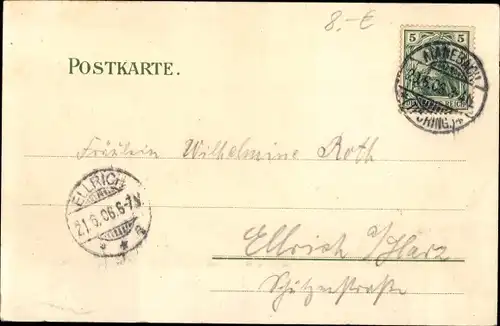 8.-€
5 5
POSTKARTE.
Fräulein Wilhelmine Roth
ELLRICH
21.6.06.6-7N.
* * a
Ellrich a/Harz
Schützenstraße